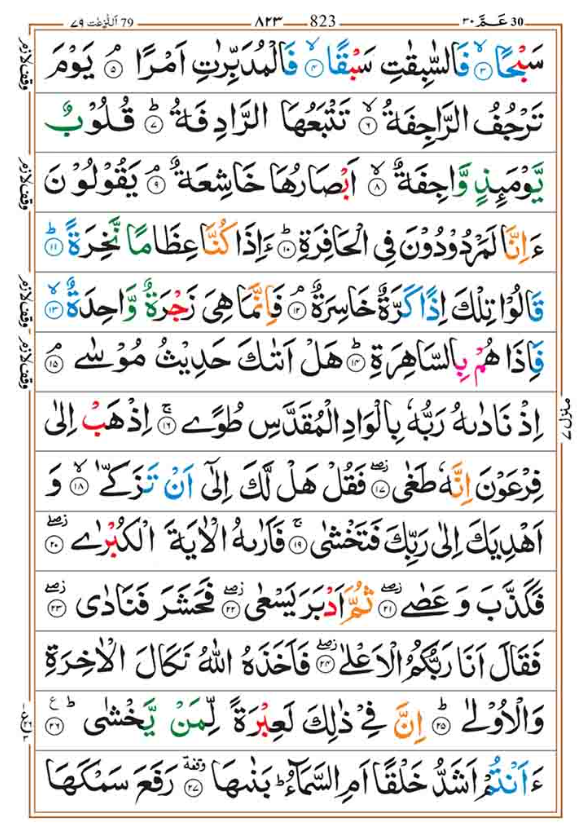 النّٰزعٰت ٧٩ 79 ٨٢٣ 823 عَمَّ ٣٠ 30
سَبْحًا ۙ‏﴿۳﴾ فَالسّٰبِقٰتِ سَبْقًا ۙ‏﴿۴﴾ فَالْمُدَبِّرٰتِ اَمْرًا ۘ‏﴿۵﴾ يَوْمَ
تَرْجُفُ الرَّاجِفَةُ ۙ‏﴿۶﴾ تَتْبَعُهَا الرَّادِفَةُ ؕ‏﴿۷﴾ قُلُوْبٌ
يَّوْمَىِٕذٍ وَّاجِفَةٌ ۙ‏﴿۸﴾ اَبْصَارُهَا خَاشِعَةٌ ۘ‏﴿۹﴾ يَقُوْلُوْنَ
ءَاِنَّا لَمَرْدُوْدُوْنَ فِى الْحَافِرَةِ ؕ‏﴿۱۰﴾ ءَاِذَا كُنَّا عِظَامًا نَّخِرَةً ؕ‏﴿۱۱﴾
قَالُوْا تِلْكَ اِذًا كَرَّةٌ خَاسِرَةٌ ۘ‏﴿۱۲﴾ فَاِنَّمَا هِىَ زَجْرَةٌ وَّاحِدَةٌ ۙ‏﴿۱۳﴾
فَاِذَا هُمْ بِالسَّاهِرَةِ ؕ‏﴿۱۴﴾ هَلْ اَتٰٮكَ حَدِيْثُ مُوْسٰى ۘ‏﴿۱۵﴾
اِذْ نَادٰٮهُ رَبُّهٗ بِالْوَادِ الْمُقَدَّسِ طُوًى ۚ‏﴿۱۶﴾ اِذْهَبْ اِلٰى
فِرْعَوْنَ اِنَّهٗ طَغٰى ۖ‏﴿۱۷﴾ فَقُلْ هَلْ لَّكَ اِلٰٓى اَنْ تَزَكّٰى ۙ‏﴿۱۸﴾ وَ
اَهْدِيَكَ اِلٰى رَبِّكَ فَتَخْشٰى ۚ‏﴿۱۹﴾ فَاَرٰٮهُ الْاٰيَةَ الْكُبْرٰى ۖ‏﴿۲۰﴾
فَكَذَّبَ وَ عَصٰى ۖ‏﴿۲۱﴾ ثُمَّ اَدْبَرَ يَسْعٰى ۖ‏﴿۲۲﴾ فَحَشَرَ فَنَادٰى ۖ‏﴿۲۳﴾
فَقَالَ اَنَا رَبُّكُمُ الْاَعْلٰى ۖ‏﴿۲۴﴾ فَاَخَذَهُ اللّٰهُ نَكَالَ الْاٰخِرَةِ
وَالْاُوْلٰى ؕ‏﴿۲۵﴾ اِنَّ فِىْ ذٰلِكَ لَعِبْرَةً لِّمَنْ يَّخْشٰى ؕ‏﴿۲۶﴾ ع
ءَاَنْتُمْ اَشَدُّ خَلْقًا اَمِ السَّمَآءُ ؕ بَنٰٮهَا ۥ‏﴿۲۷﴾ وقفة رَفَعَ سَمْكَهَا
وقف لازم
وقف لازم
وقف لازم
وقف لازم
منزل ٧